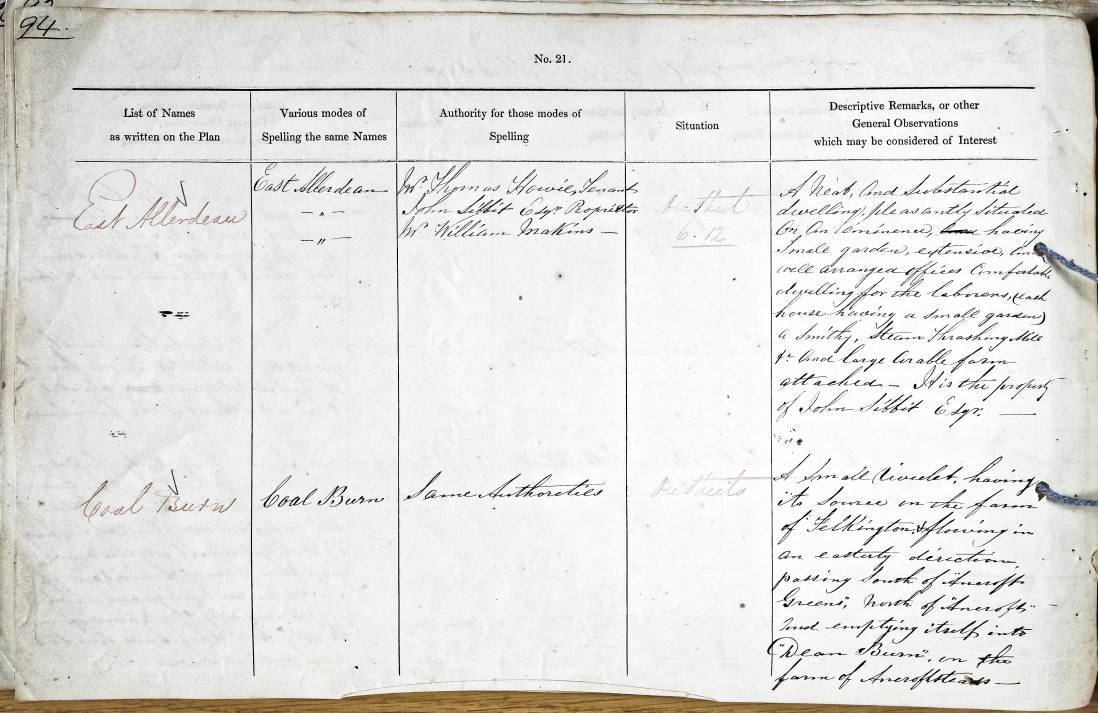 94.
No. 21.
List of Names
as written on the Plan
Various modes of
Spelling the same Names
Authority for those modes of
Spelling
Situation
Descriptive Remarks, or other
General Observations
which may be considered of Interest
East Allerdean
East Allerdean
— „ —
— „ —
Mr. Thomas Howie, Tenant
John Sibbit Esqr. Propriètor
Mr. William Makins —
6. 12
A Neat, and Substantial
dwelling, pleasantly Situated
On an eminence, and having
Small garden, extensive, and
well arranged offices Comfortable
dwelling for the laborers, (each
house having a Small garden)
a Smithy, Steam Thrashing Mill
&c. And large Arable farm
attached — It is the property
of John Sibbit Esqr. —
Coal Burn
Coal Burn
Same Authoreties
A Small rivulet, having
its Source on the farm
of Felkington, & flowing in
an easterly direction,
passing South of "Ancroft
Greens", North of "Ancroft,"
and emptying itself, into
"Dean Burn", on the
farm of Ancroftsteads —